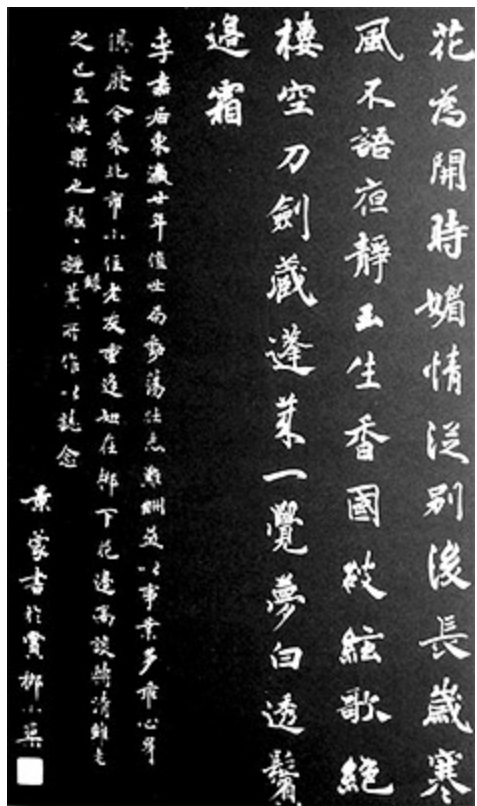 花為開時媚情從別後長歲寒
風不語夜靜玉生香國破絃歌絕
樓空刀劍藏蓬萊一覺夢白透鬢
邊霜
李嘉居東瀛廿年值世局動蕩壯志難酬益以事業多乖心身
俱廢今來北市小住老友重逢如在鄉下花邊高談
之已至樂之所作以誌念
書於小築